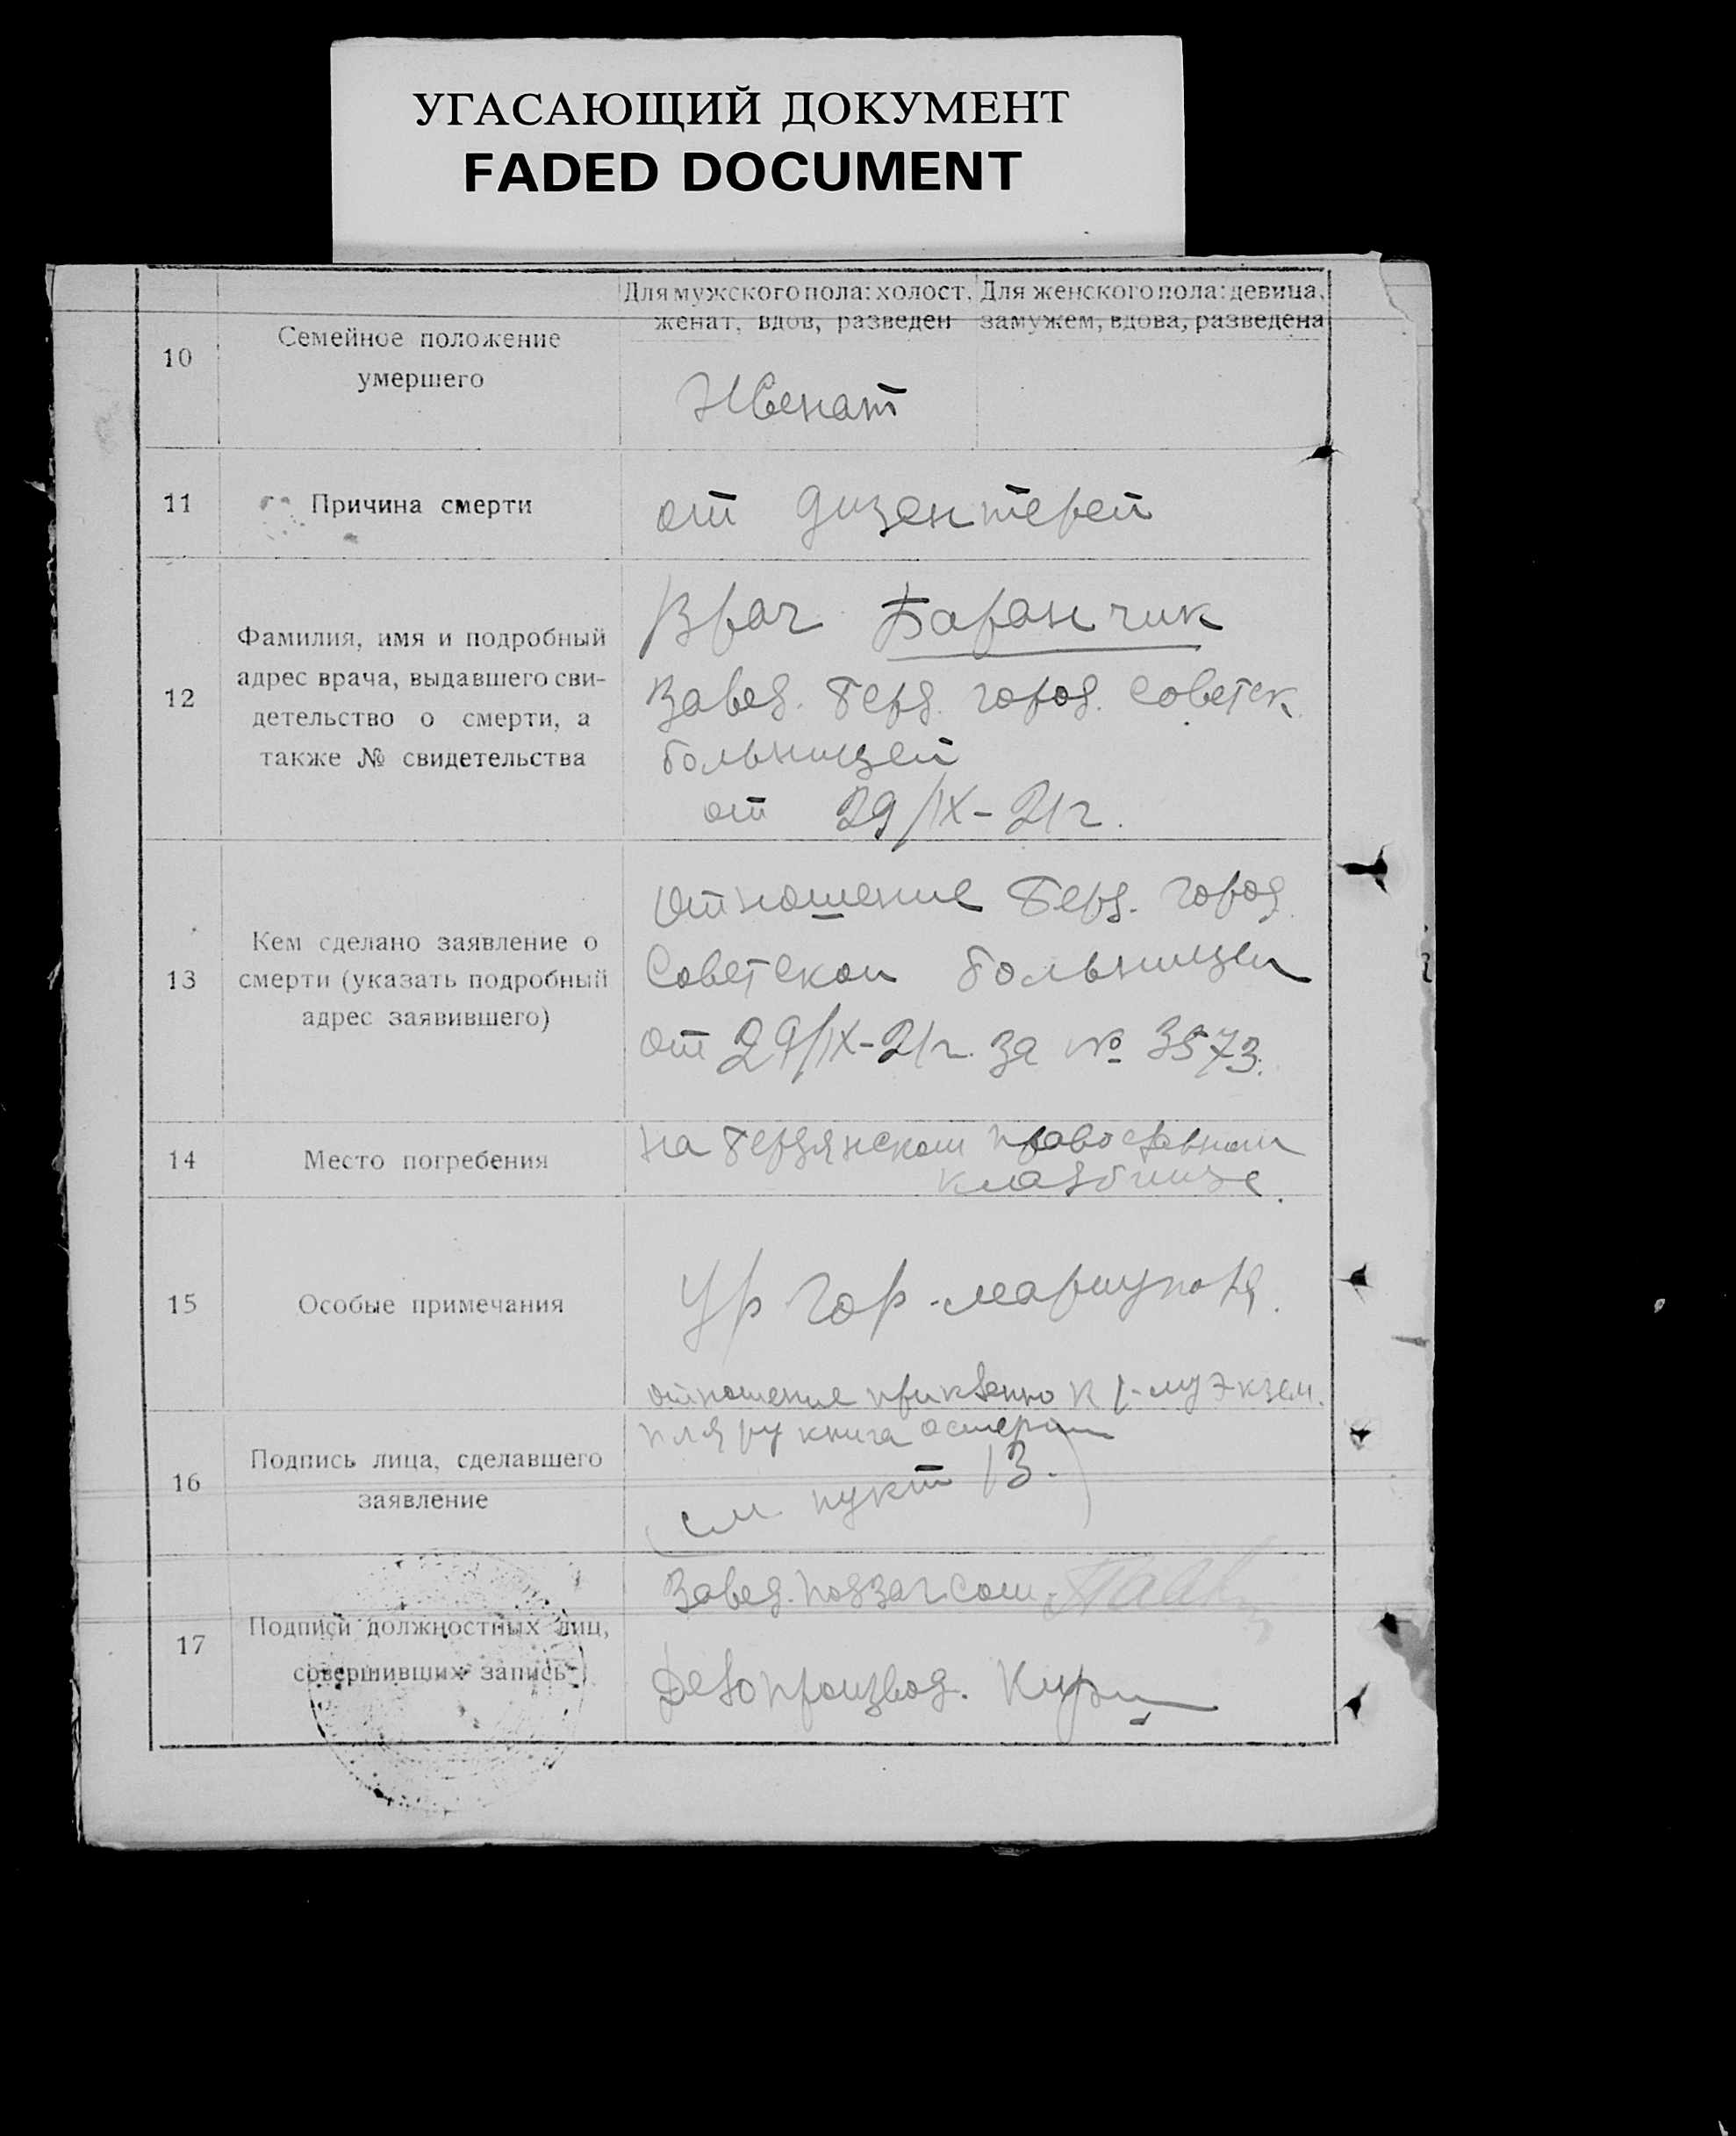 УГАСАЮЩИЙ ДОКУМЕНТ
FADED DOCUMENT
10
Семейное положение
умершего
Для мужского пола: холост,
женат, вдов, разведен
Для женского пола: девица,
замужем, вдова, разведена
Женат
11
Причина смерти
от дизентереи
12
Фамилия, имя и подробный
адрес врача, выдавшего сви-
детельство о смерти, а
также № свидетельства
Врач Баранчик
Завед. берд. город. советск.
больницей
от 29/IX-21г.
13
Кем сделано заявление о
смерти (указать подробный
адрес заявившего)
Отношение берд. город.
Советской больницей
от 29/IX-21г. за № 3573.
14
Место погребения
на бердянском православном
кладбище.
15
Особые примечания
Ур гор. мариуполя.
отношение приклеено к 1-му экзем.
пляру книга осмерти
16
Подпись лица, сделавшего
заявление
(см. пункт 13.)
17
Подписи должностных лиц,
совершивших запись
Завед. подзагсом
Делопроизвод.